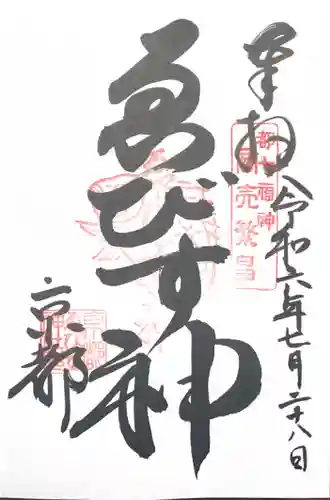 奉拝
都七福神
商売繁昌
令和六年七月二十八日
ゑびす神
京都